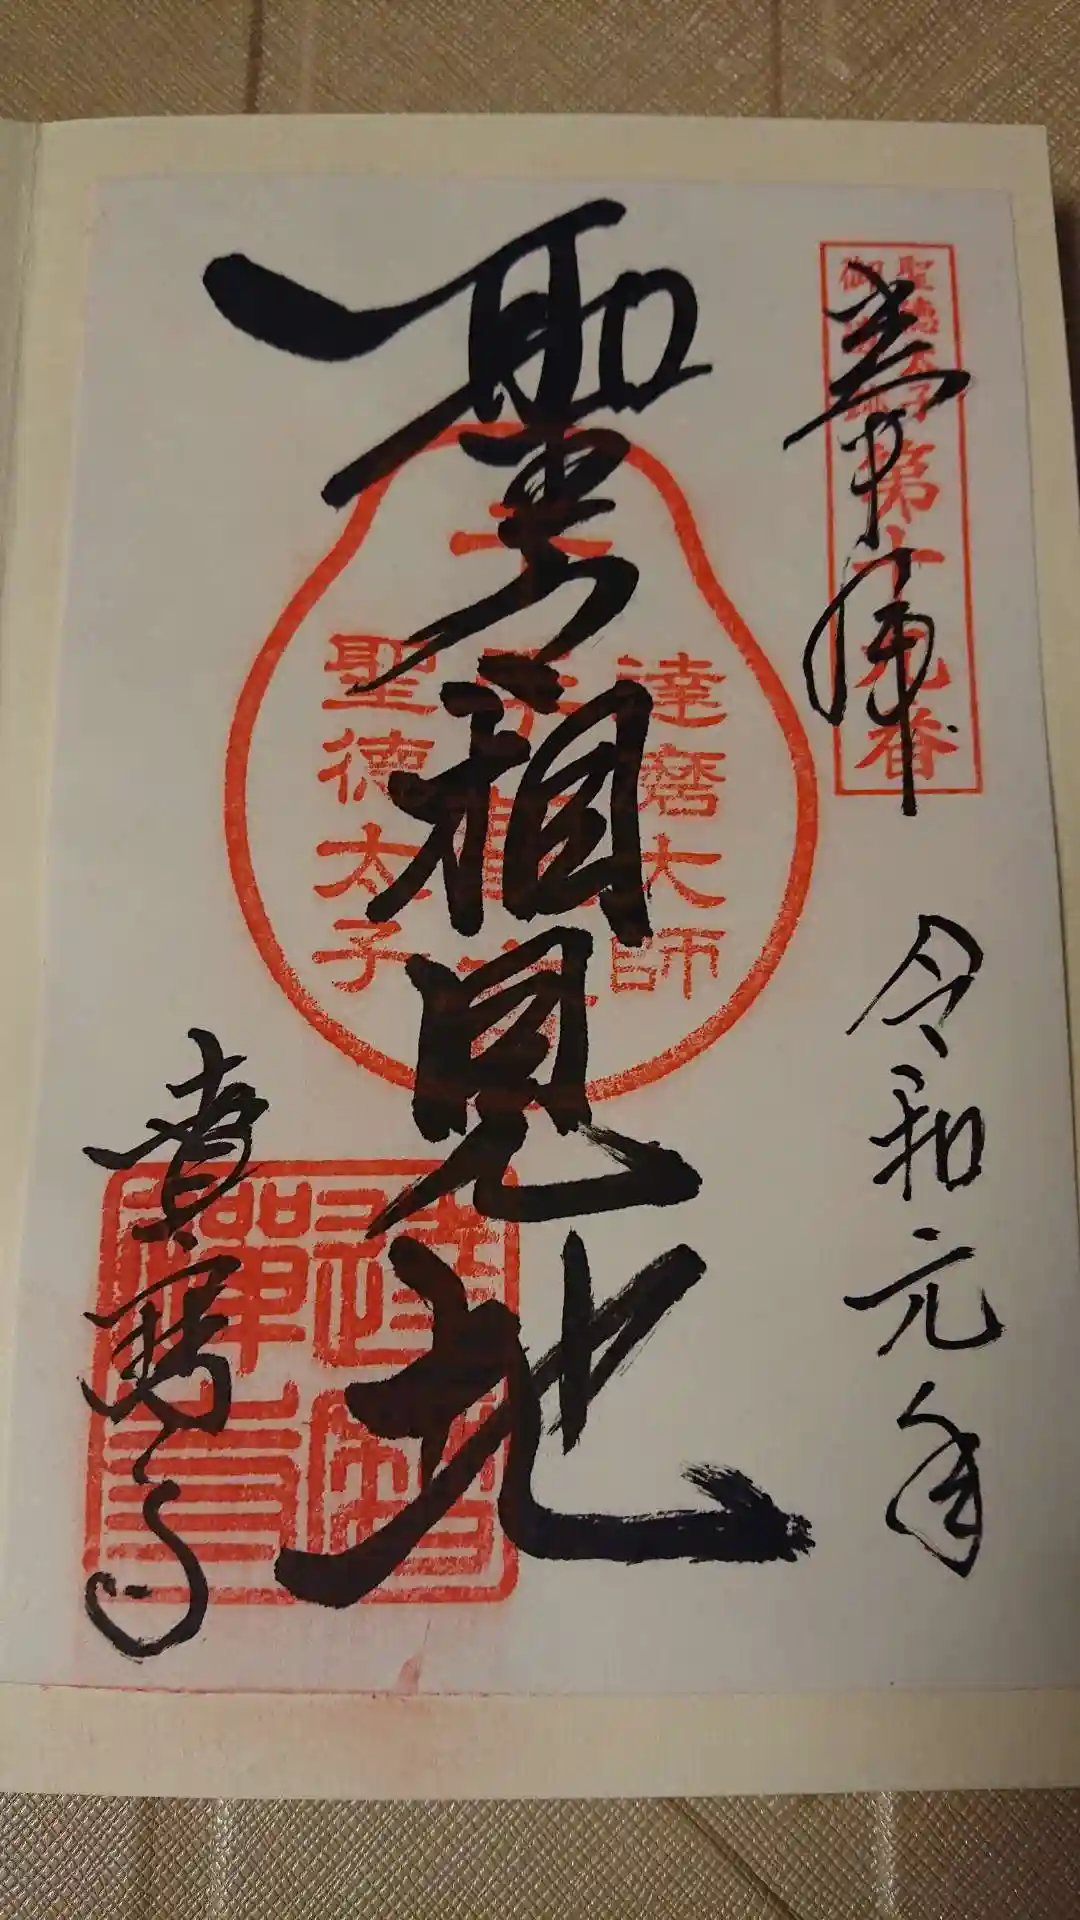 聖徳太子
御遺跡
第十九番
奉拝
令和元年
達磨大師
千手観音
聖徳太子
聖相見地
達磨寺
達磨
禅寺